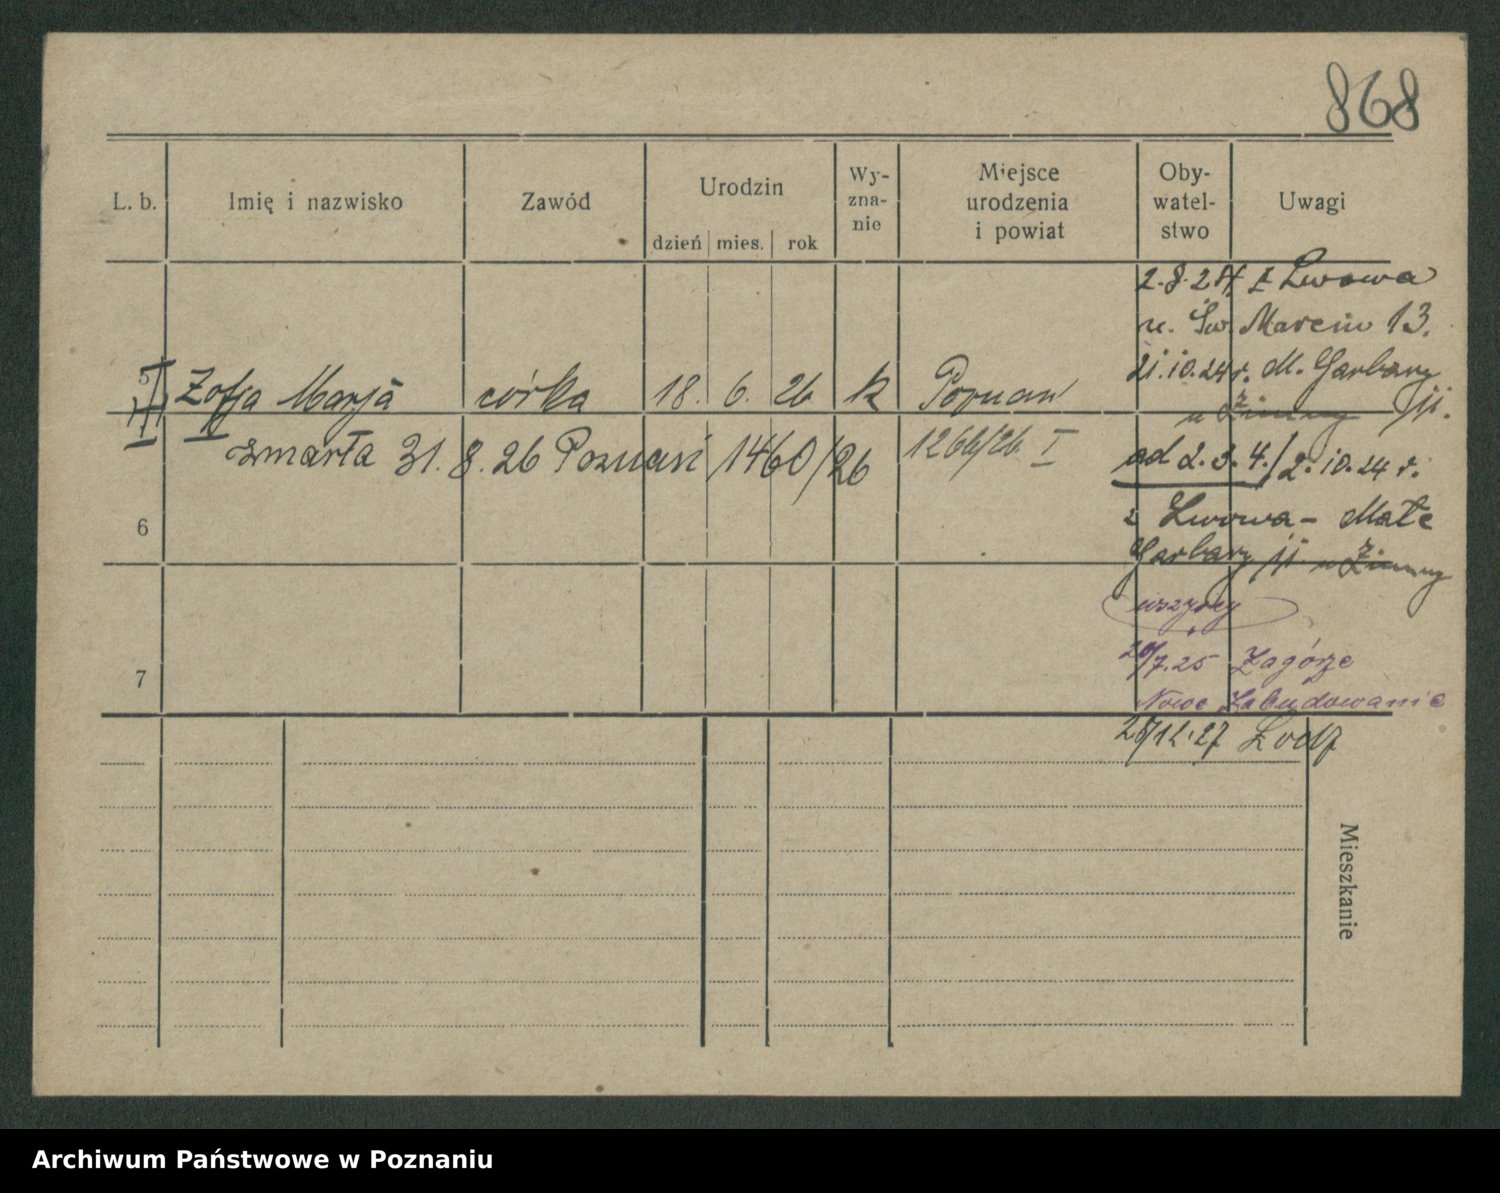 868
L. b.
Imię i nazwisko
Zawód
Urodzin
dzień mies. rok
Wy-
zna-
nie
Miejsce
urodzenia
i powiat
Oby-
watel-
stwo
Uwagi
5 Zofja Marja córka 18. 6. 26 k Poznań
zmarła 31. 8. 26 Poznań 1460/26
1266/26 I
6
7
2.8.24 z Lwowa
u. Św. Marcin 13.
21.10.24 r. M. Garbary
u Zimny 11.
od 2.3.4./2.10.24 r.
z Lwowa - Małe
Garbary 11 u Zimny
wszyscy
7.25 Zagórze
Nowe Zabudowanie
28/12.27 Łodź
Mieszkanie
Archiwum Państwowe w Poznaniu